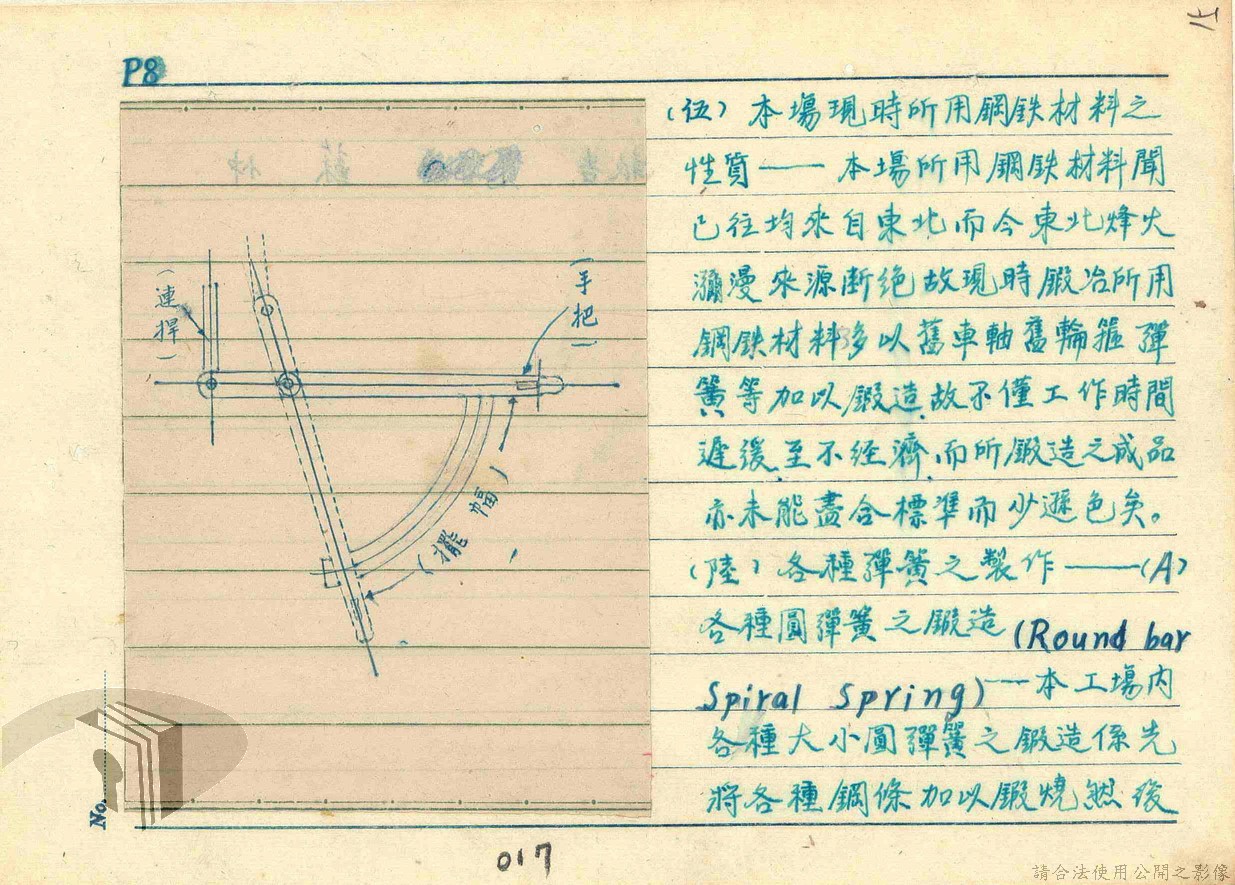 P8
(伍) 本場現時所用鋼鉄材料之
性質——本場所用鋼鉄材料聞
已往均來自東北而今東北烽火
瀰漫來源断絕故現時鍛冶所用
鋼鉄材料多以舊車軸舊輪箍彈
簧等加以鍛造故不僅工作時間
遲緩至不经濟而所鍛造之成品
亦未能盡合標準而少遜色矣。
(陸) 各種彈簧之製作——(A)
各種圓彈簧之鍛造(Round bar
Spiral Spring)—本工場内
各種大小圓彈簧之鍛造係先
將各種鋼條加以鍛燒然後
(連捍)
(手把)
(擺幅)
No.
017
請合法使用公開之影像